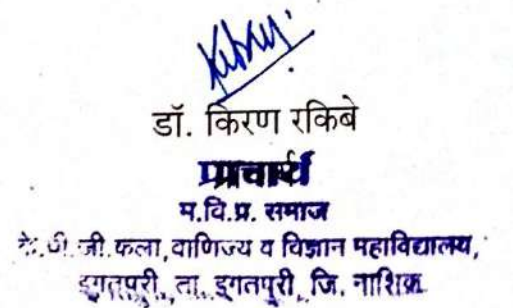 डॉ. किरण रकिबे
प्राचार्य
म.वि.प्र. समाज
के. पी. जी. कला, वाणिज्य व विज्ञान महाविद्यालय,
इगतपुरी, ता. इगतपुरी, जि. नाशिक